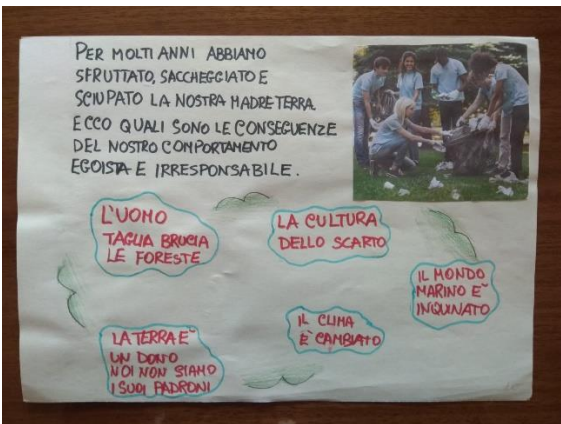 PER MOLTI ANNI ABBIAMO
SFRUTTATO, SACCHEGGIATO E
SCIUPATO LA NOSTRA MADRE TERRA.
ECCO QUALI SONO LE CONSEGUENZE
DEL NOSTRO COMPORTAMENTO
EGOISTA E IRRESPONSABILE.
L'UOMO
TAGLIA BRUCIA
LE FORESTE
LA CULTURA
DELLO SCARTO
IL MONDO
MARINO E'
INQUINATO
IL CLIMA
E' CAMBIATO
LA TERRA E'
UN DONO
NOI NON SIAMO
I SUOI PADRONI